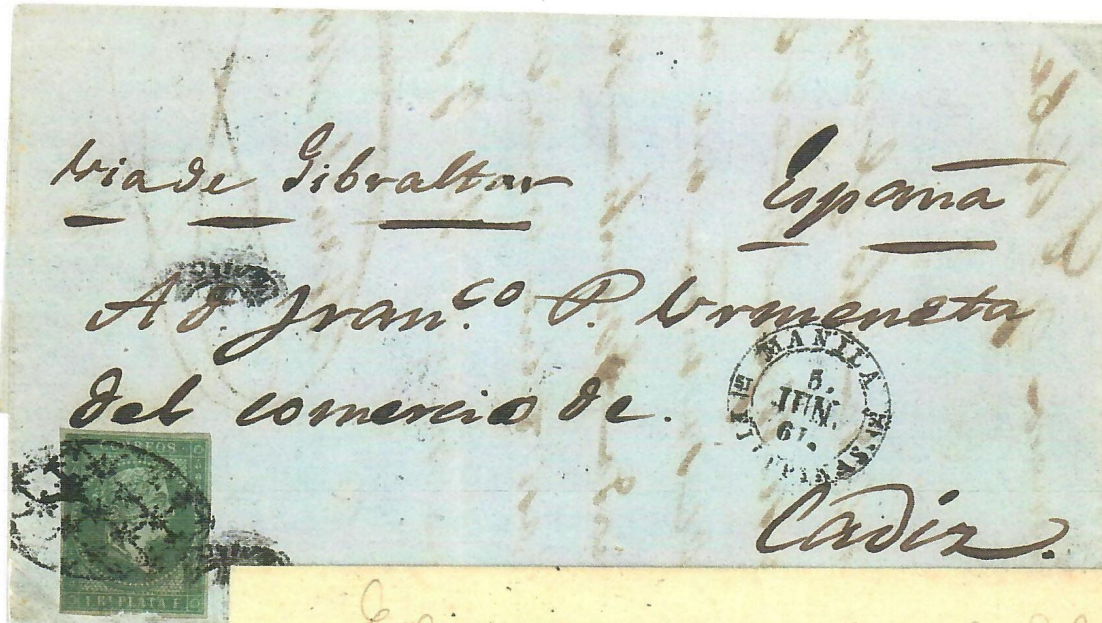 Via de Gibraltar España
A d. Fran.co P. Urmeneta
del comercio de.
MANILA
5.
JUN.
61.
Cadiz.
CORREOS
1 Rl PLATA F